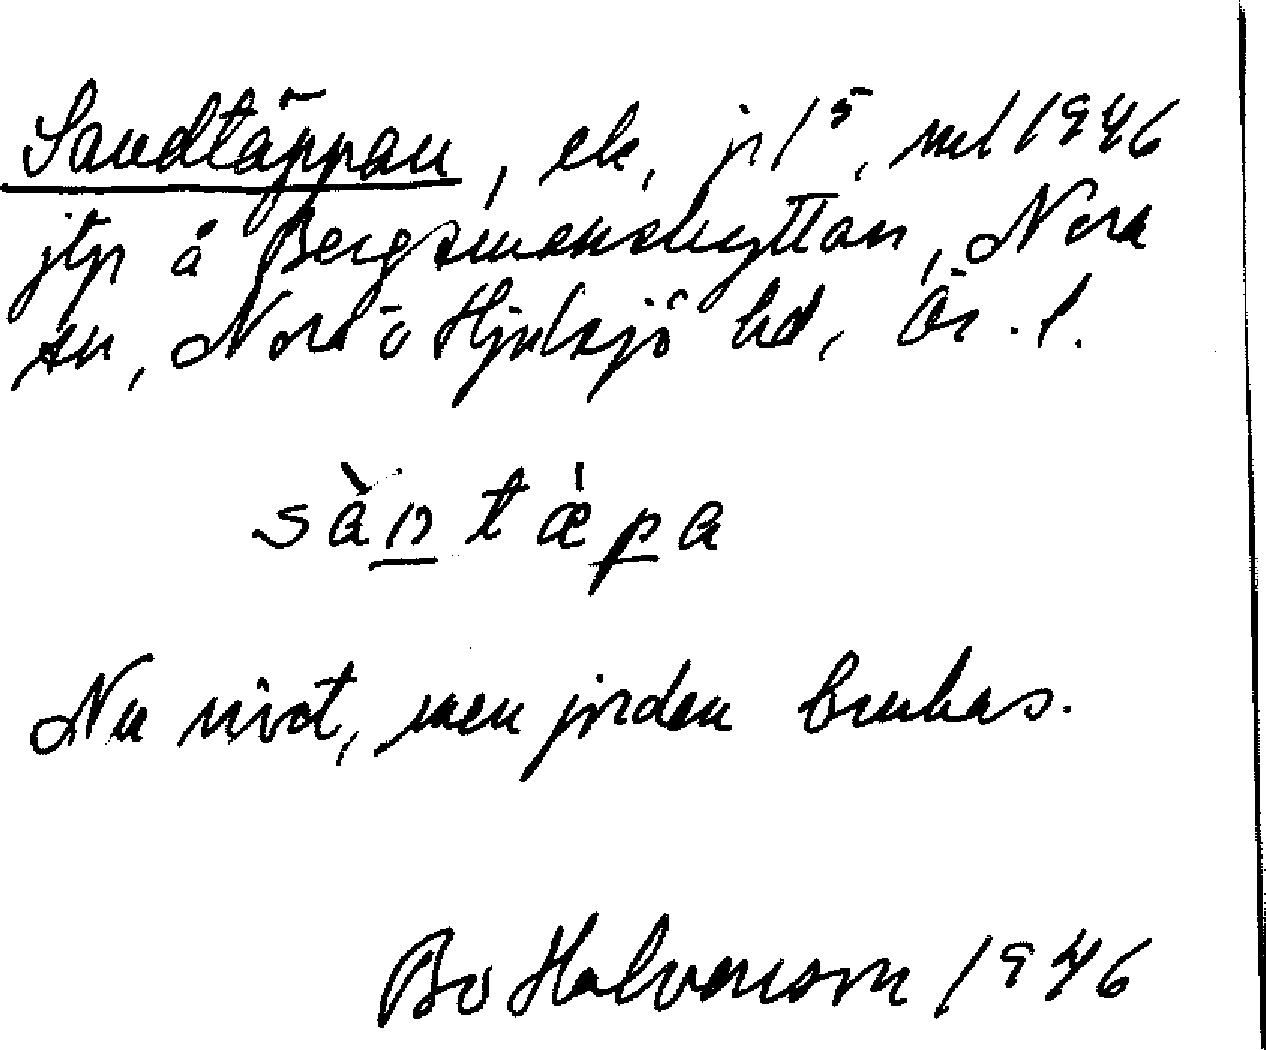 Sandtäppan, ek, jr 1⁵, uul 1946
jtp å Bergsmanshyttan, Nora
sn, Nora o Hjulsjö hd, Ör. l.
sàn tæ̀pa
Nu rivet, men jorden brukas.
Bo Halvarson 1946